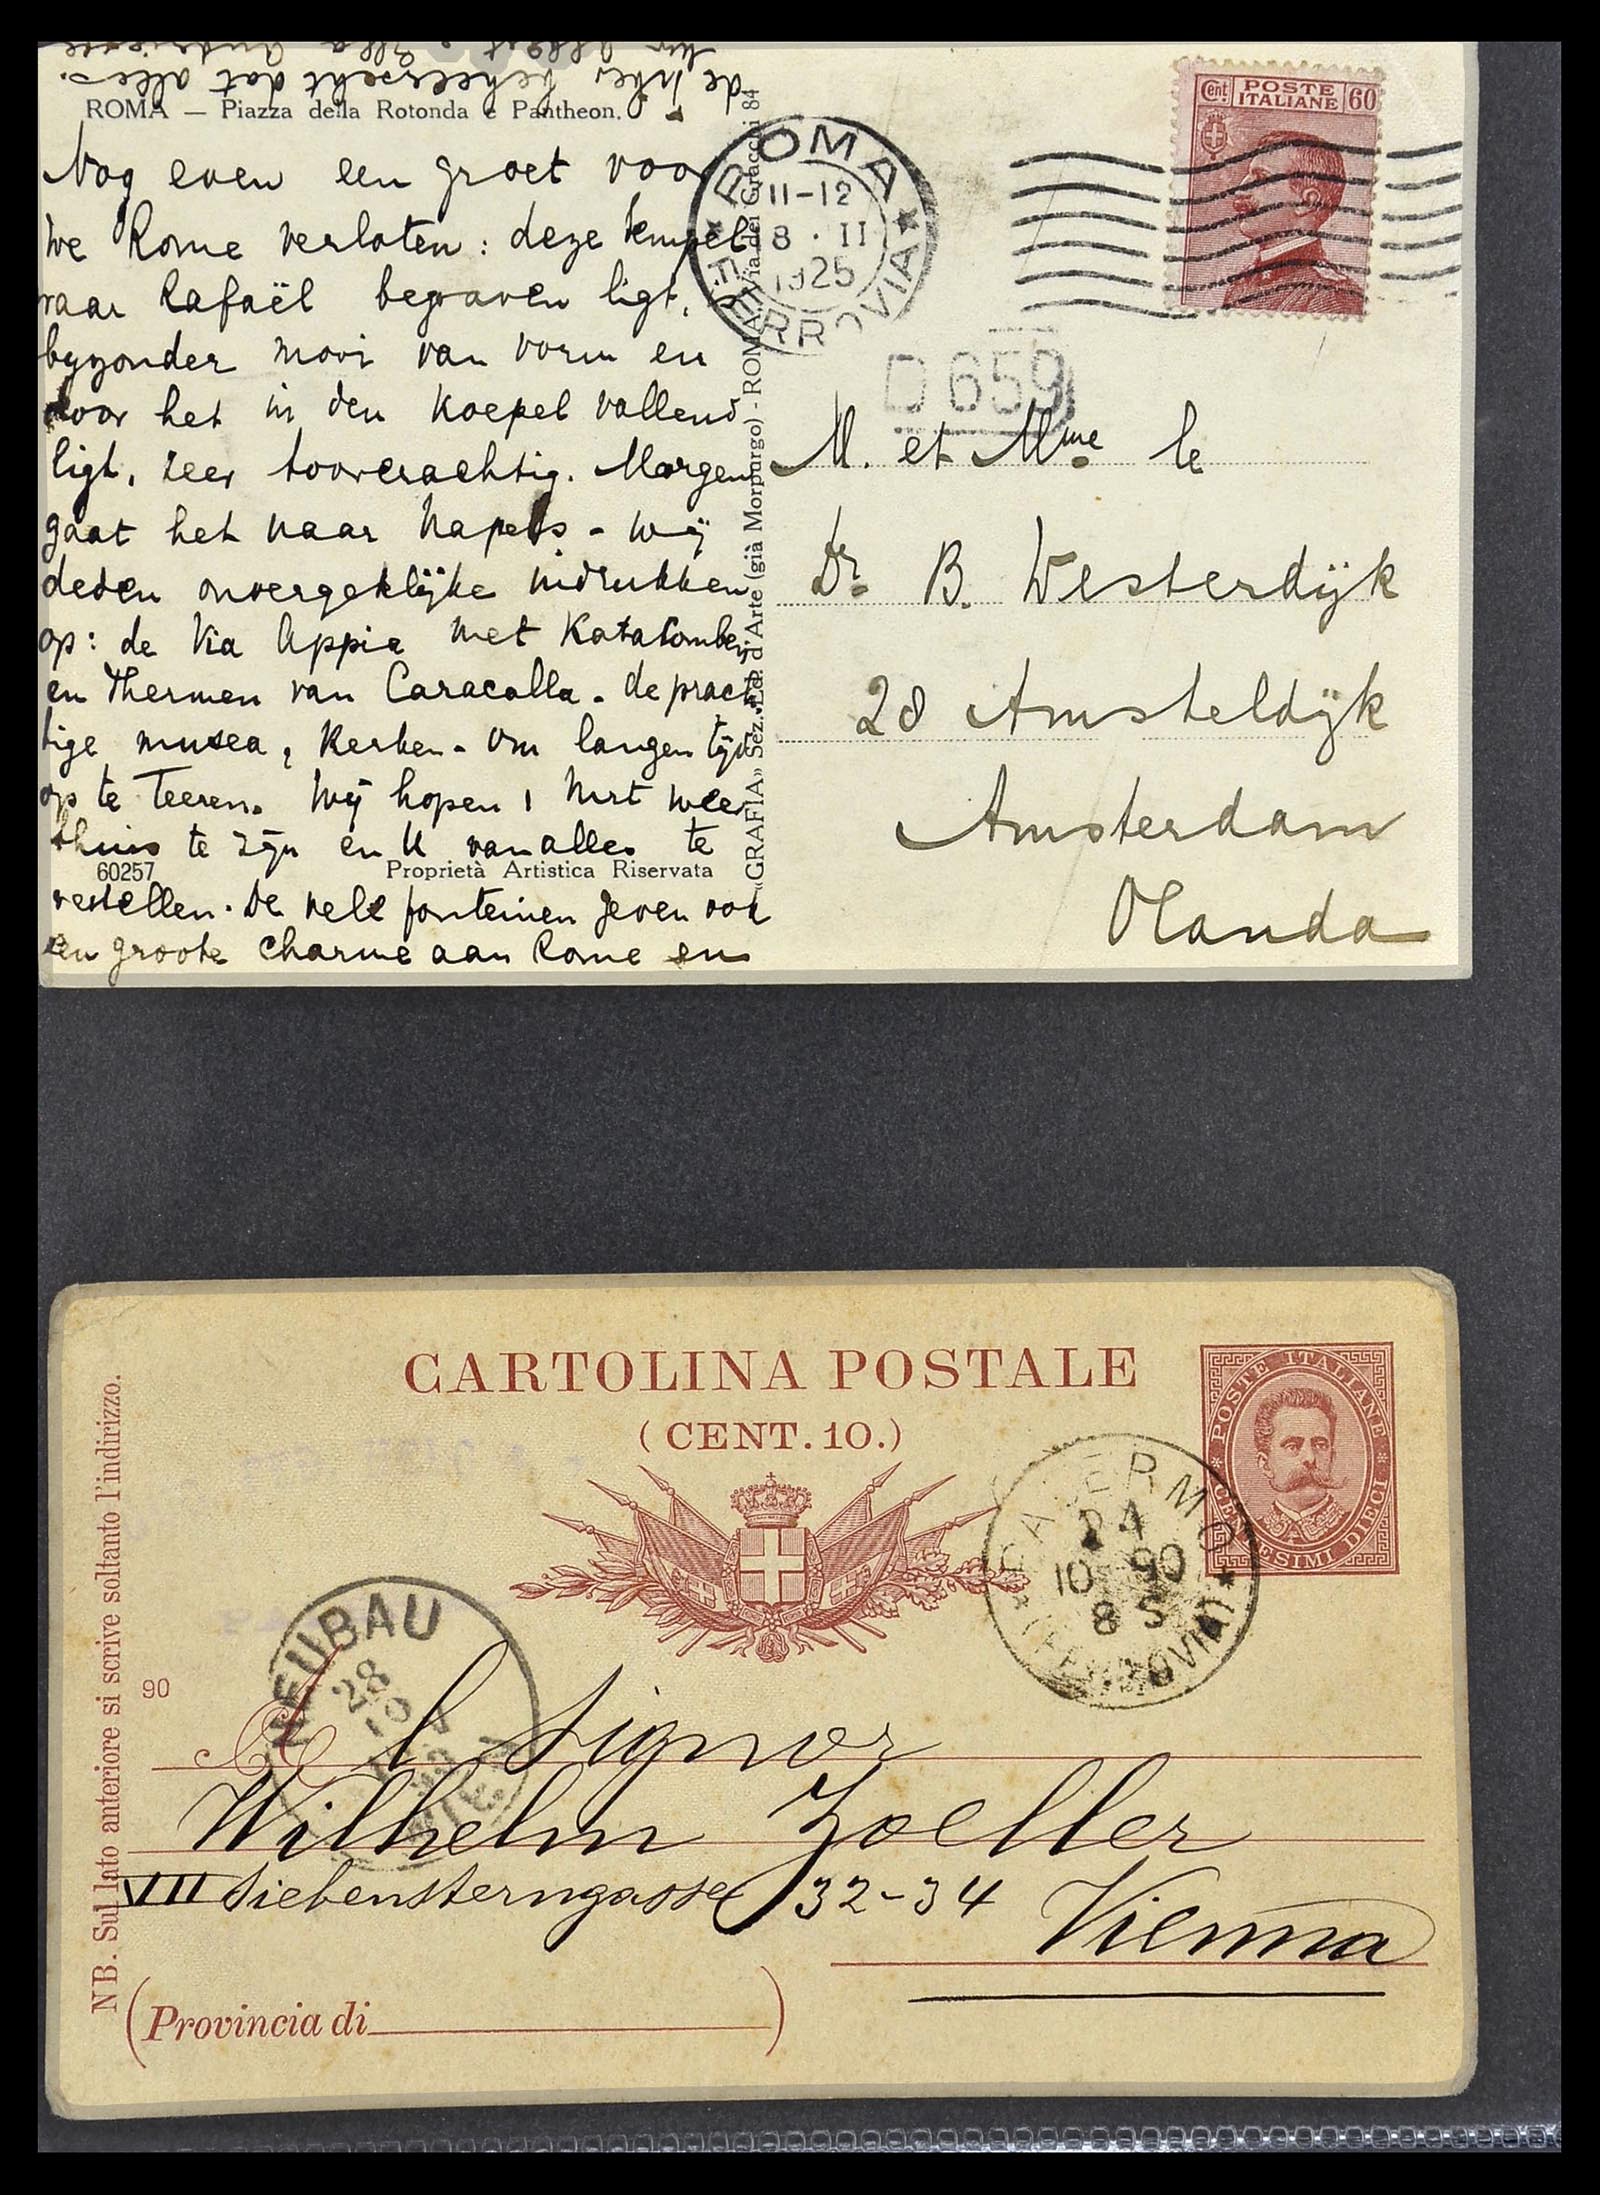 de Tiber beheerscht dat alles.
ROMA — Piazza della Rotonda e Pantheon.
Nog even een groet voor
we Rome verlaten: deze tempel
waar Rafaël begraven ligt, is
byzonder mooi van vorm en
door het in den koepel vallend
ligt, zeer toovcrachtig. Morgen
gaat het naar Napels - wij
deden onvergetelijke indrukken
op: de Via Appia met Katakomben
en Thermen van Caracalla. de prach
tige musea, kerken - om langen tijd
op te teeren. Wij hopen 1 Mrt weer
thuis te zijn en U van alles te
60257 Proprietà Artistica Riservata
vertellen. De vele fonteinen geven ook
een groote charme aan Rome en
«GRAFIA» Sez. Ed. d'Arte (già Morpurgo) - ROMA, Via dei Gracchi 84
ROMA
11-12
8 · II
1925
FERROVIA
Cent. POSTE ITALIANE 60
D 659
M. et Mme le
Dr. B. Westerdijk
28 Amsteldijk
Amsterdam
Olanda
CARTOLINA POSTALE
(CENT. 10.)
POSTE ITALIANE
CENTESIMI DIECI
PALERMO
24
10 90
8 S
(FERROVIA)
NEUBAU
28
10
WIEN
90
Al Signor
Wilhelm Zoeller
VII Siebensterngasse 32-34
Vienna
(Provincia di )
NB. Sul lato anteriore si scrive soltanto l'indirizzo.